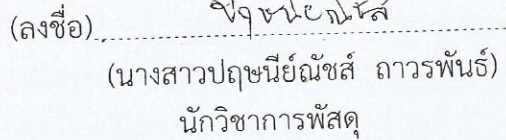 (ลงชื่อ) ปฤษนีย์ณัชส์
(นางสาวปฤษนีย์ณัชส์ ถาวรพันธ์)
นักวิชาการพัสดุ